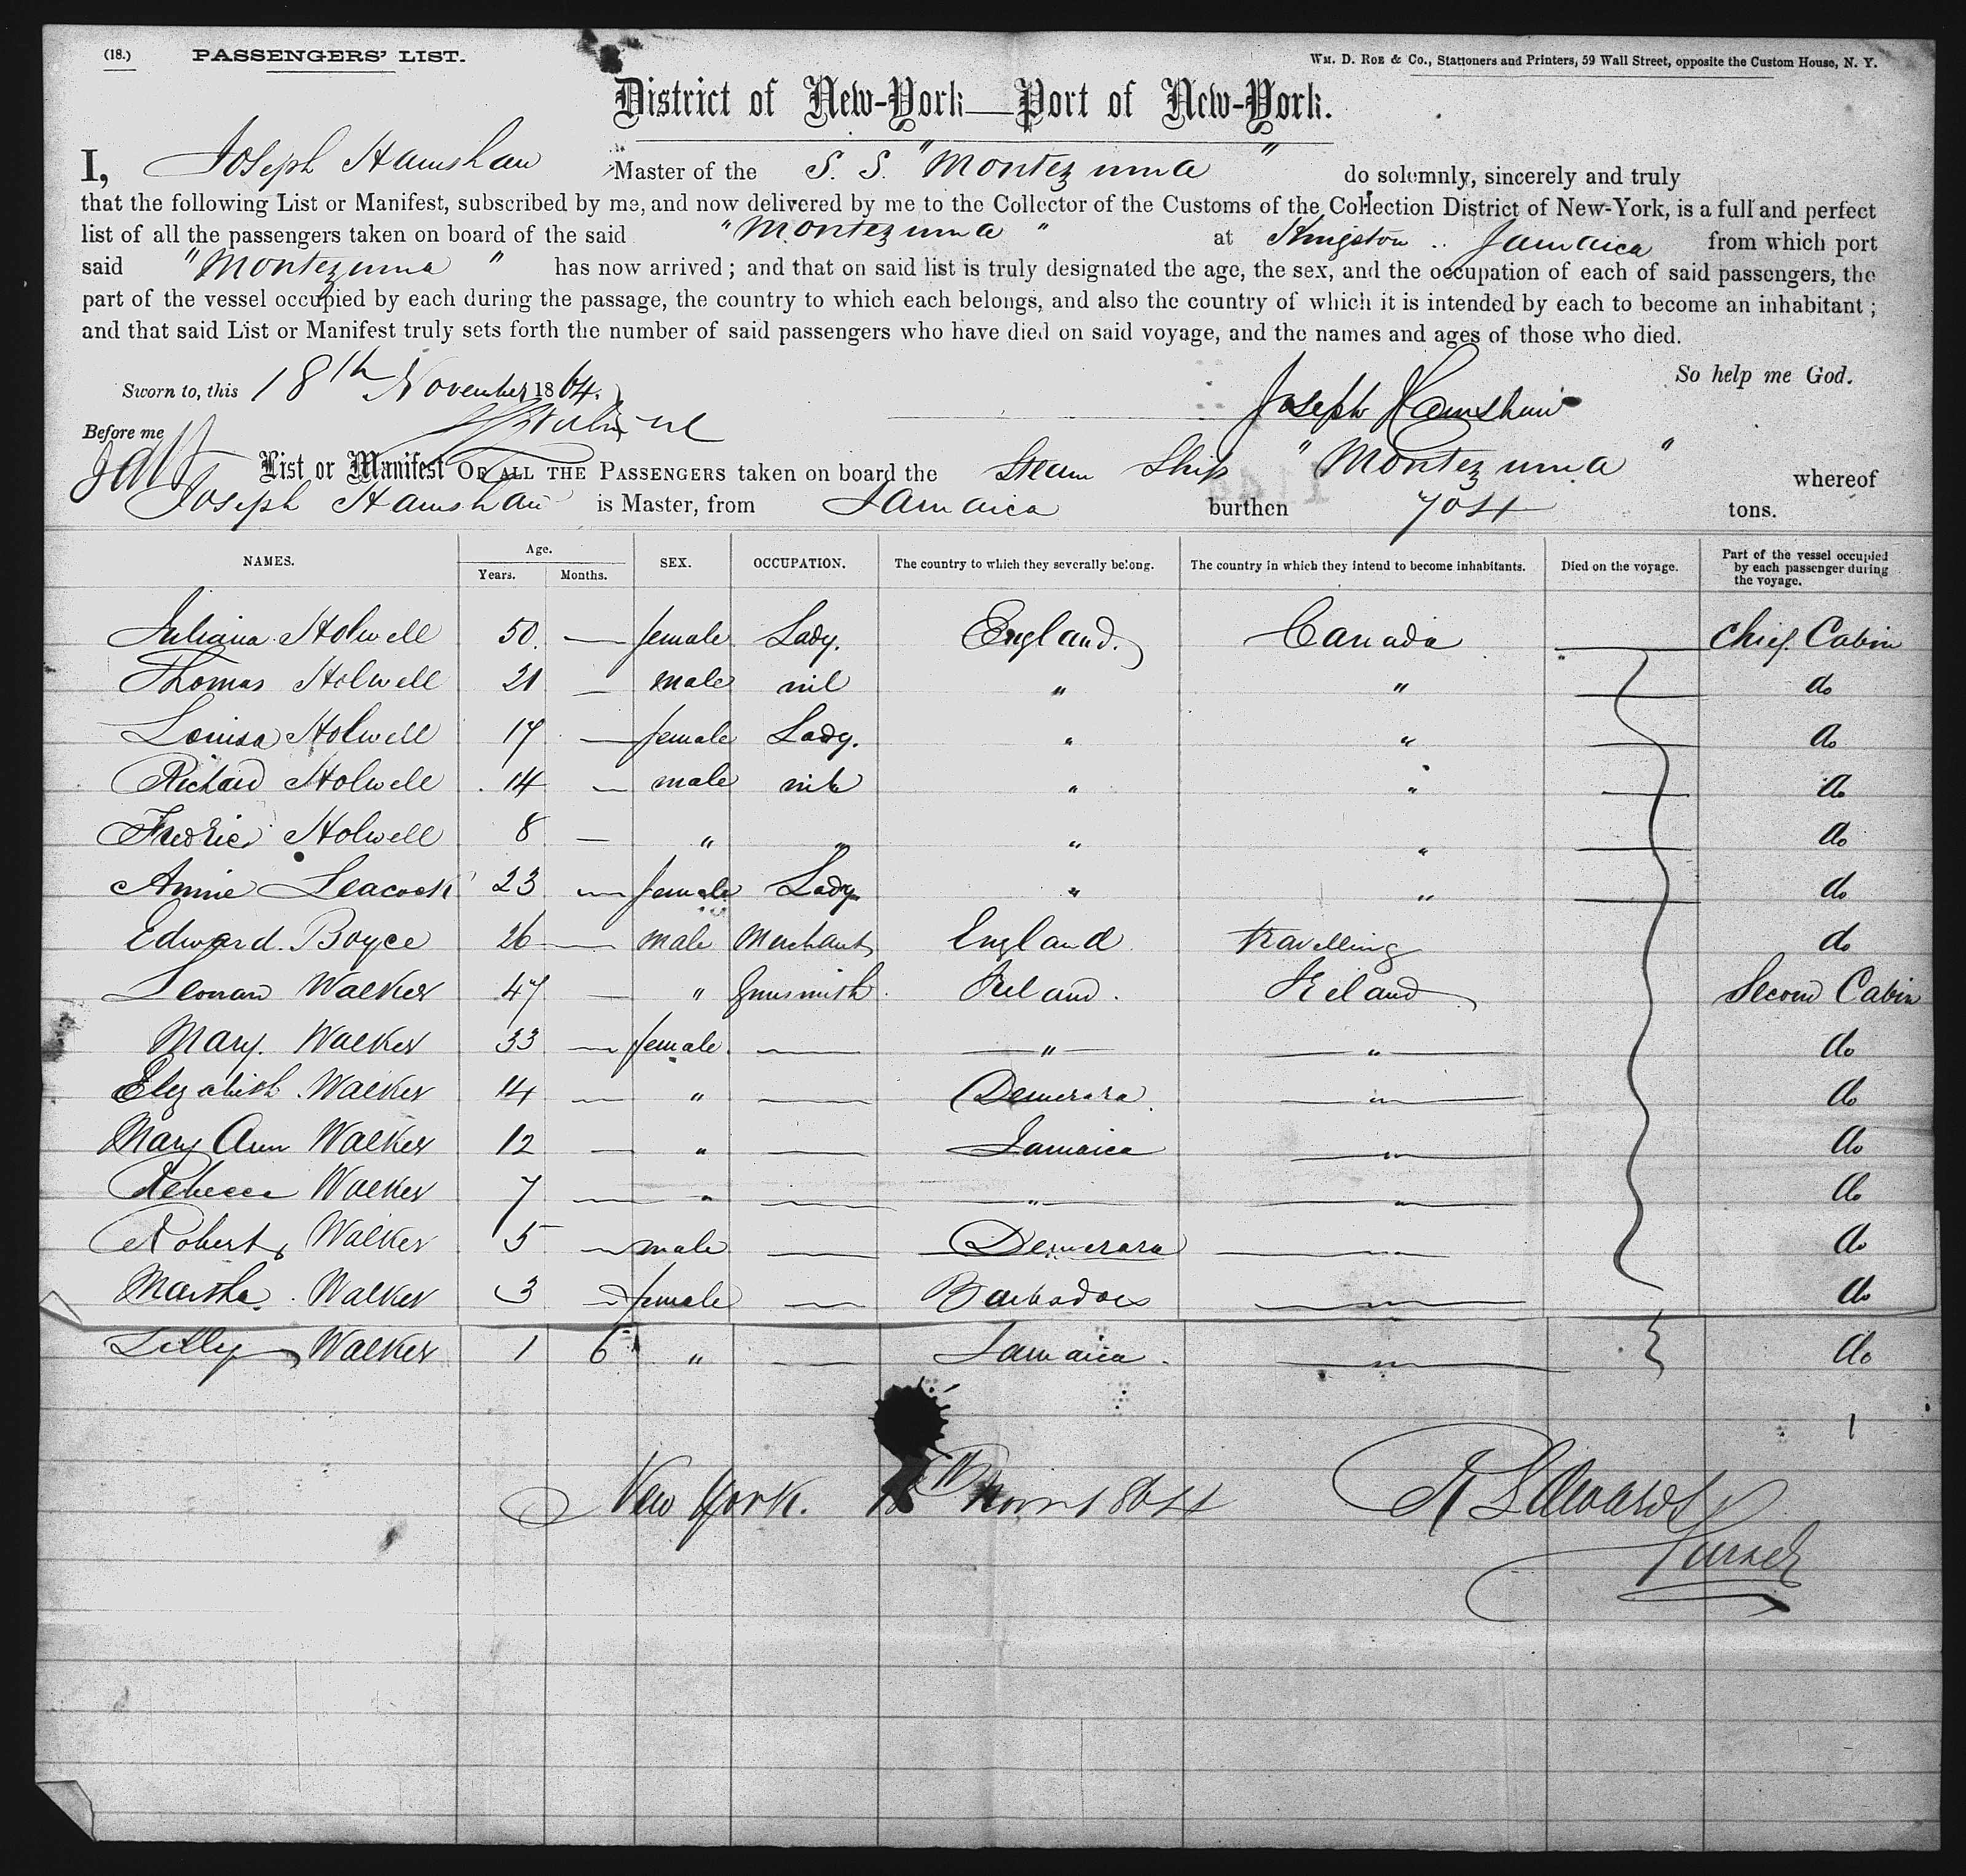 (18.) PASSENGERS' LIST. Wm. D. Roe & Co., Stationers and Printers, 59 Wall Street, opposite the Custom House, N. Y.
District of New-York—Port of New-York.
I, Joseph Hamshaw Master of the S. S. "Montezuma" do solemnly, sincerely and truly
that the following List or Manifest, subscribed by me, and now delivered by me to the Collector of the Customs of the Collection District of New-York, is a full and perfect
list of all the passengers taken on board of the said "Montezuma" at Kingston .. Jamaica from which port
said "Montezuma" has now arrived; and that on said list is truly designated the age, the sex, and the occupation of each of said passengers, the
part of the vessel occupied by each during the passage, the country to which each belongs, and also the country of which it is intended by each to become an inhabitant;
and that said List or Manifest truly sets forth the number of said passengers who have died on said voyage, and the names and ages of those who died.
So help me God.
Sworn to, this 18th November 1864. Joseph Hamshaw
Before me
List or Manifest OF ALL THE PASSENGERS taken on board the Steam Ship "Montezuma" whereof
Joseph Hamshaw is Master, from Jamaica burthen 704 tons.
NAMES. Age. Years. Months. SEX. OCCUPATION. The country to which they severally belong. The country in which they intend to become inhabitants. Died on the voyage. Part of the vessel occupied by each passenger during the voyage.
Juliana Holwell 50. — female Lady. England. Canada — Chief Cabin
Thomas Holwell 21 — male nil " " — do
Louisa Holwell 17 — female Lady. " " — do
Richard Holwell 14 — male nil " " — do
Fredric Holwell 8 — " " " " — do
Annie Leacock 23 — female Lady " " — do
Edward Boyce 26 — male Merchant England travelling do
Leonan Walker 47 — " Gunsmith Ireland. Ireland Second Cabin
Mary. Walker 33 — female — " " do
Elizabeth Walker 14 — " — Demerara " do
Mary Ann Walker 12 — " — Jamaica " do
Rebecca Walker 7 — " — " " do
Robert Walker 5 — male — Demerara " do
Martha Walker 3 — female — Barbadoes " do
Lilly Walker 1 6 " — Jamaica. " do
New York. 18th Novr 1864 R Edwards
Purser